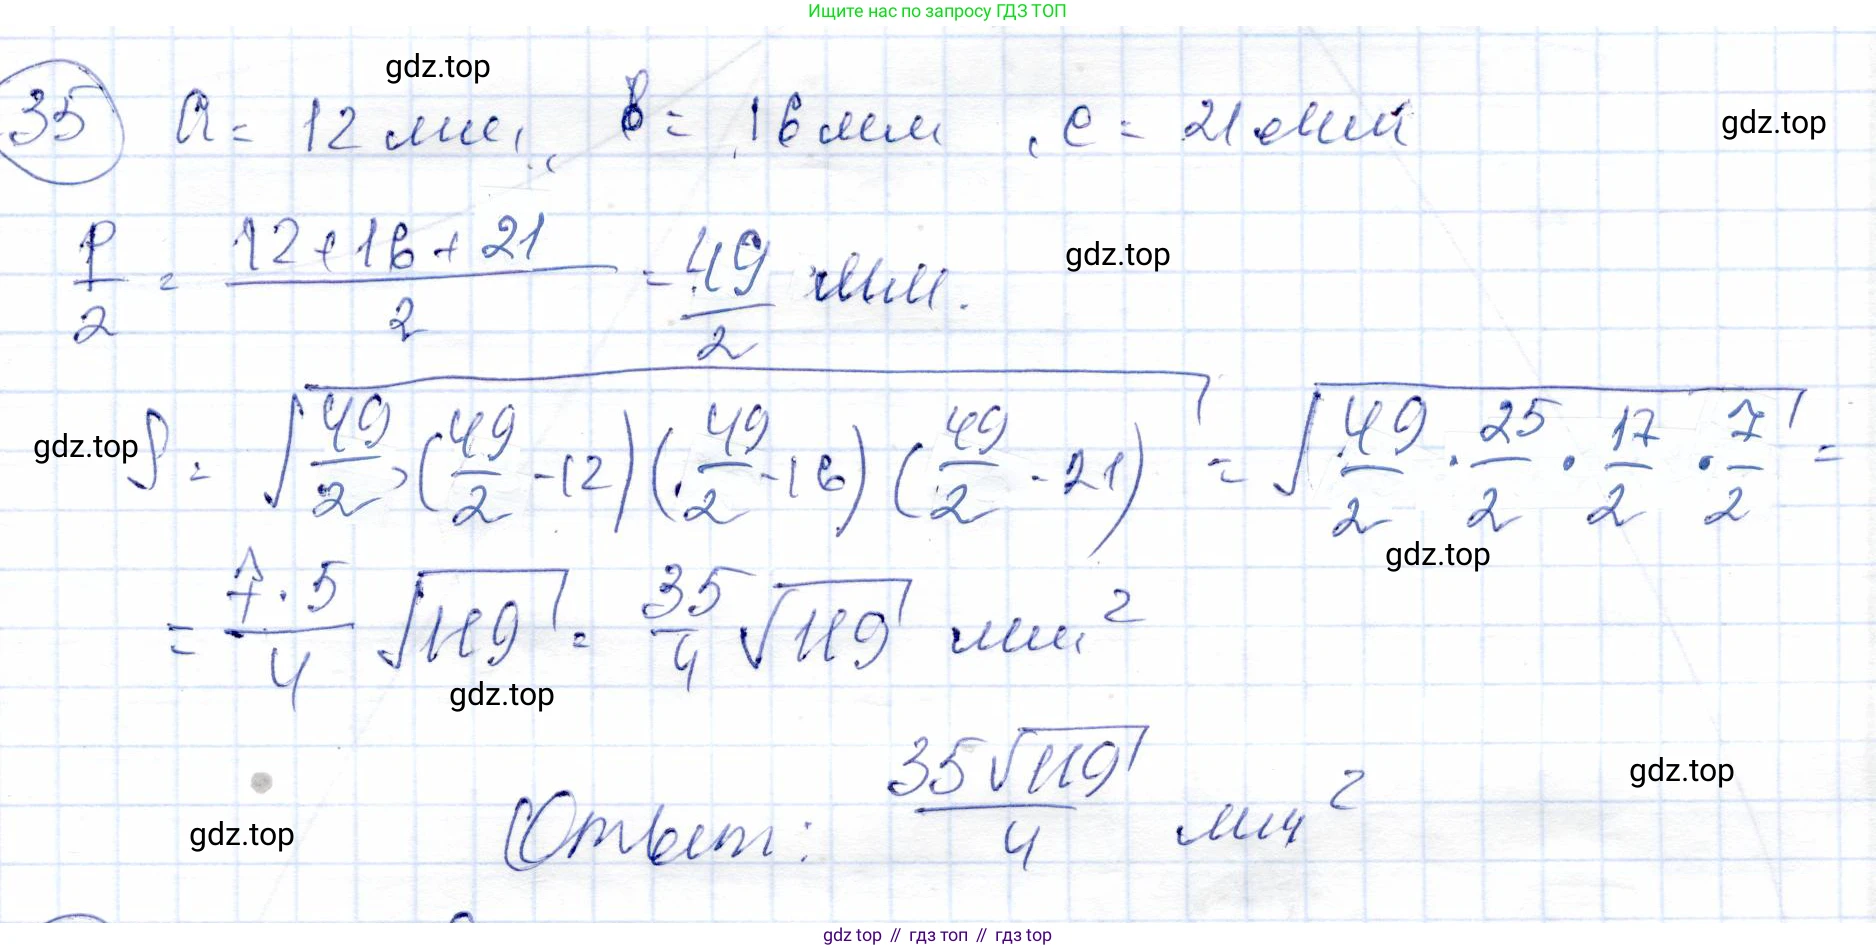 Ищите нас по запросу ГДЗ ТОП
gdz.top
35 a = 12 мм, b = 16 мм, c = 21 мм
gdz.top
P/2 = (12+16+21)/2 = 49/2 мм.
gdz.top
gdz.top
S = √(49/2 · (49/2 - 12)(49/2 - 16)(49/2 - 21)) = √(49/2 · 25/2 · 17/2 · 7/2) =
gdz.top
= 7·5/4 √119 = 35/4 √119 мм²
gdz.top
gdz.top
Ответ: 35√119/4 мм²
gdz.top
gdz top // гдз топ // гдз.top